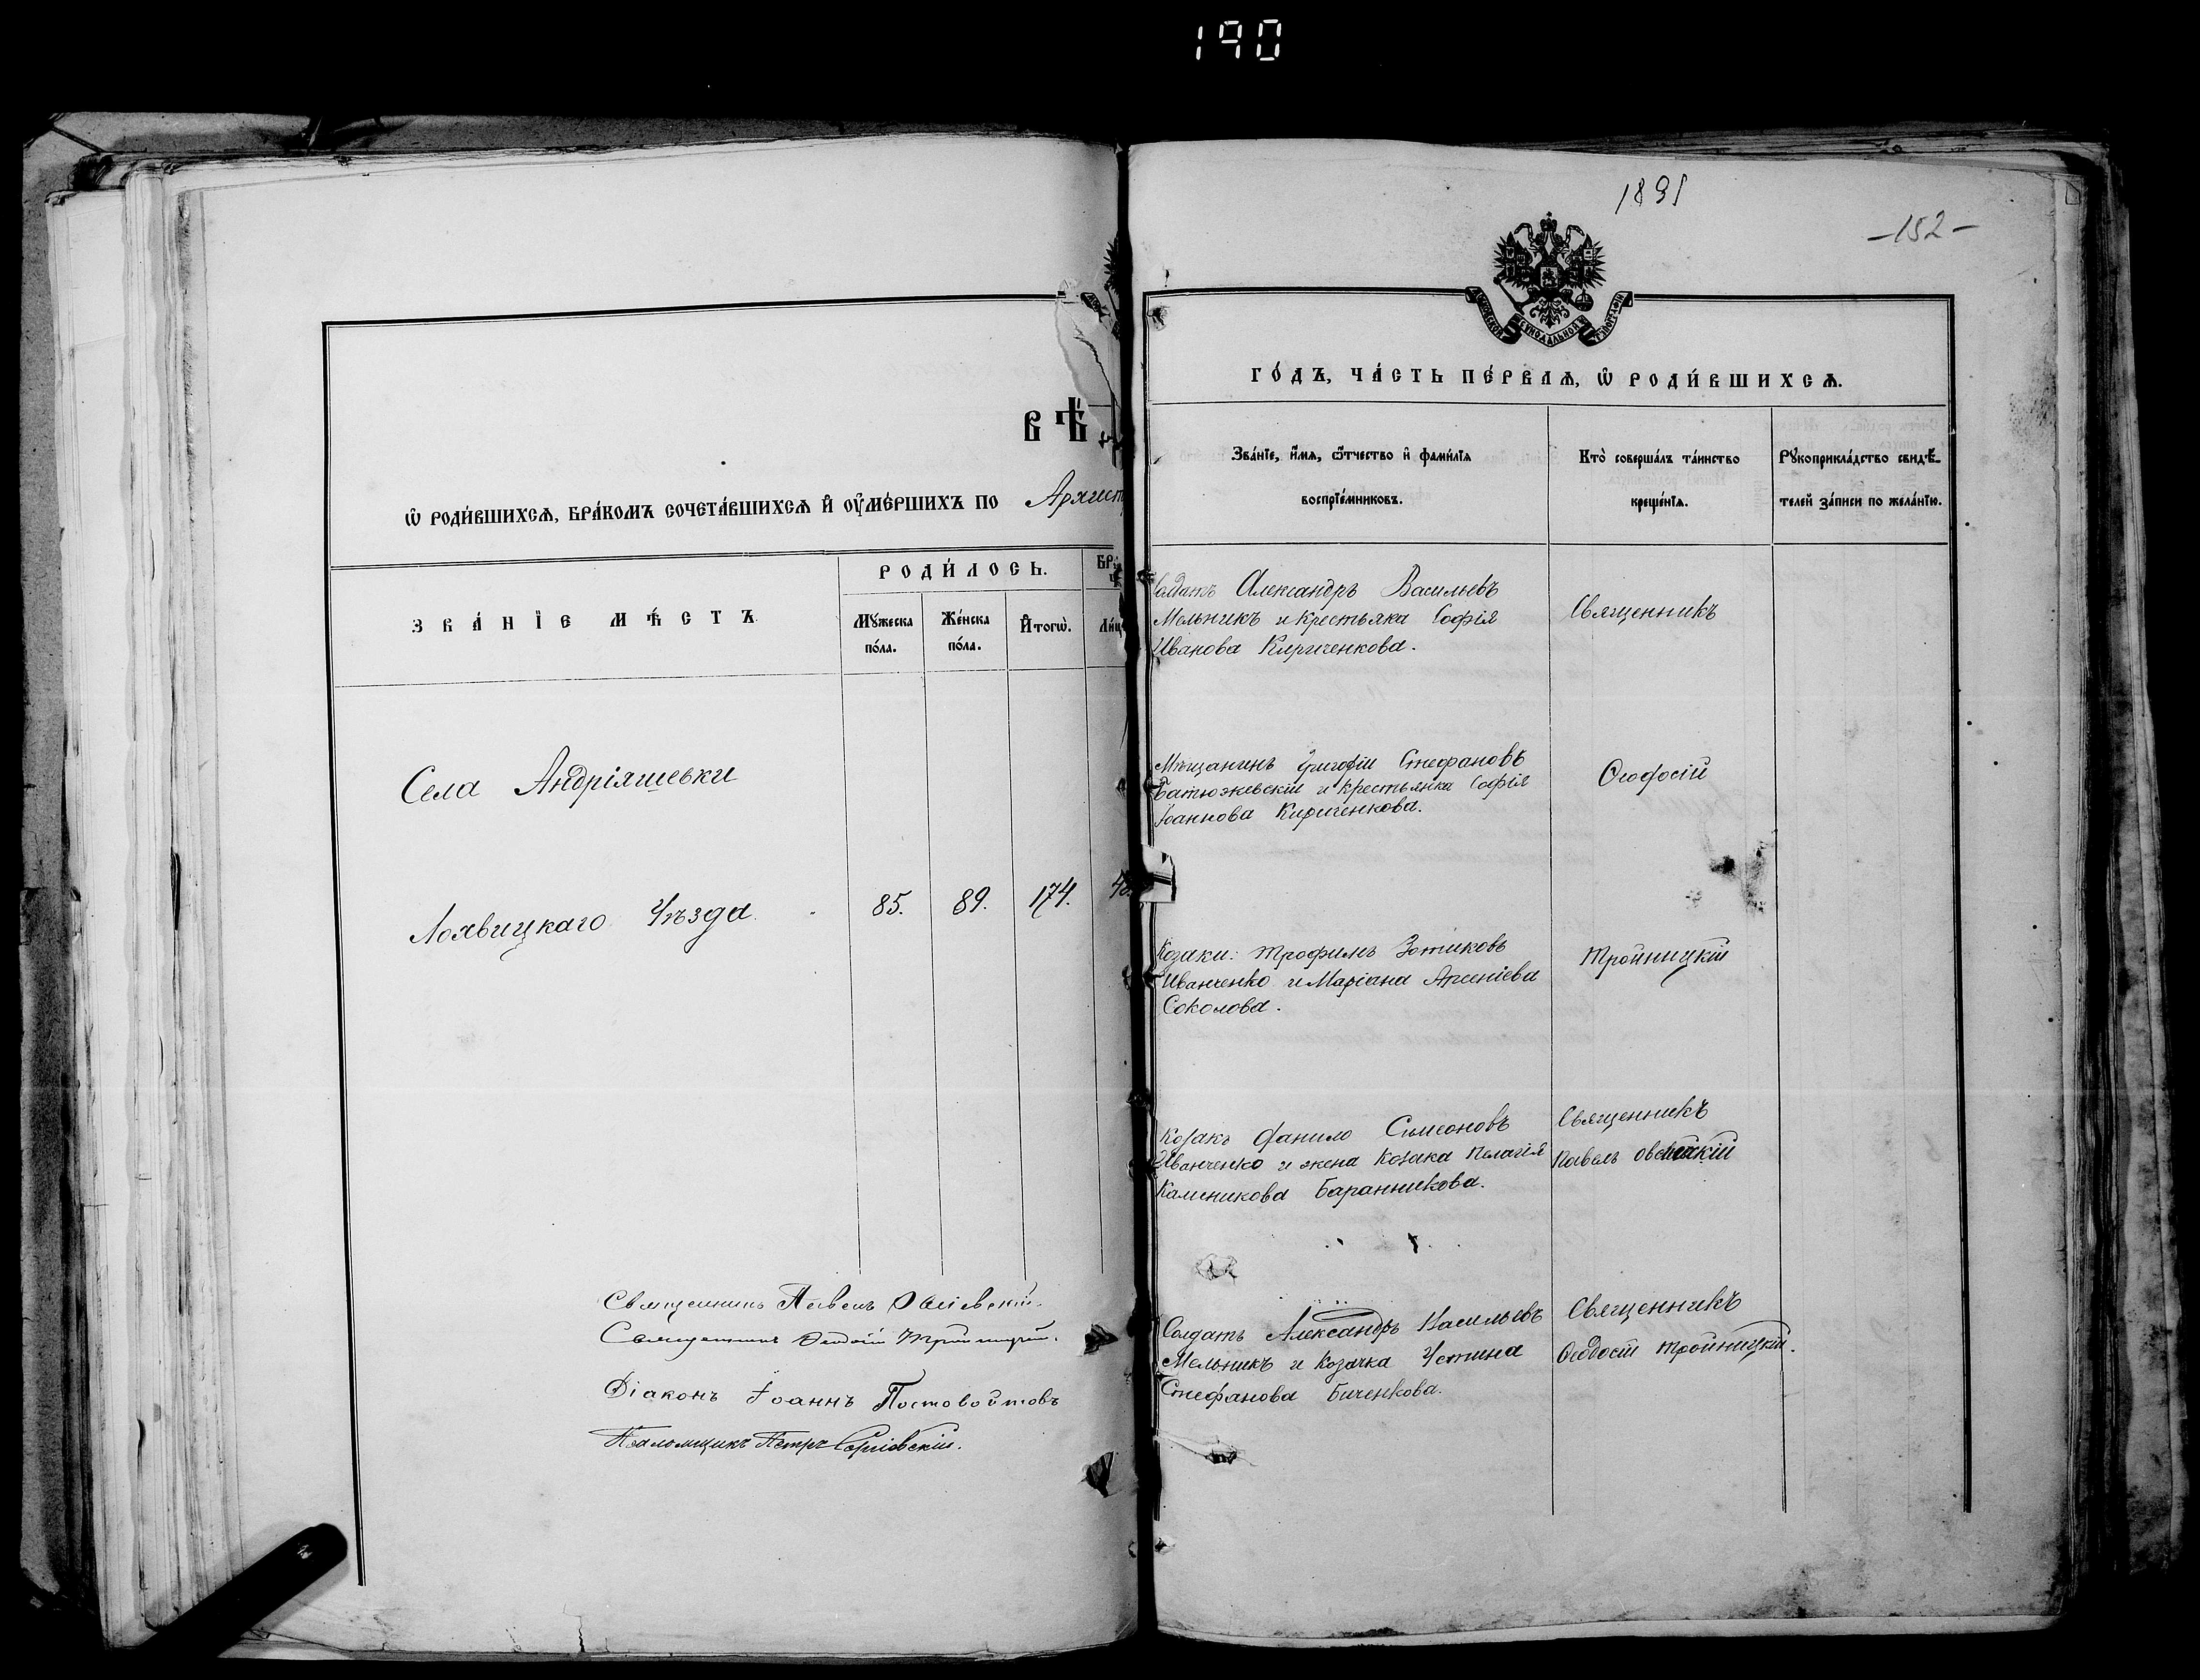 190
ВѢ
Ѡ РОДИ́ВШИХСѦ, БРА́КОМЪ СОЧЕТА́ВШИХСѦ И҆ ОУ҆МЕ́РШИХЪ ПО Архист
ЗВА́НЇЕ МѢ́СТЪ
РОДИ́ЛОСЬ.
БР
Мꙋ́жеска по́ла.
Же́нска по́ла.
И҆тогѡ̀.
Ли́ц
Села Андріяшевки
Лохвицкаго Уѣзда
85. 89. 174.
Священникъ Павелъ Овсіевскій.
Священникъ Ѳеодосій Тройницкій.
Діаконъ Іоаннъ Постовойтовъ
Псаломщикъ Петръ Сергіевскій.
1891
-152-
МОСКОВСКОЙ СѴНОДАЛЬНОЙ ТѴПОГРАФІИ
ГО́ДЪ, ЧА́СТЬ ПЕ́РВАѦ, Ѡ РОДИ́ВШИХСѦ.
Зва́нїе, и҆́мѧ, ѻ҆́тчество и҆ фами́лїѧ
воспрїе́мниковъ.
Кто̀ соверша́лъ та́инство
креще́нїѧ.
Рꙋкоприкла́дство свидѣ́-
телей за́писи по жела́нїю.
Солдатъ Александръ Васильевъ
Мельникъ и крестьянка Софія
Иванова Кириченкова.
Священникъ
Мѣщанинъ Григорій Стефановъ
Батюжевскій и крестьянка Софія
Іоаннова Кириченкова.
Ѳеодосій
Козаки: Трофимъ Зотиковъ
Иванченко и Маріана Арсеніева
Соколова.
Тройницкій
Козакъ Данило Симеоновъ
Иванченко и жена козака Пелагія
Каленикова Баранникова.
Священникъ
Павелъ
Солдатъ Александръ Васильевъ
Мельникъ и козачка Устина
Стефанова Биченкова.
Священникъ
Ѳеодосій Тройницкій.